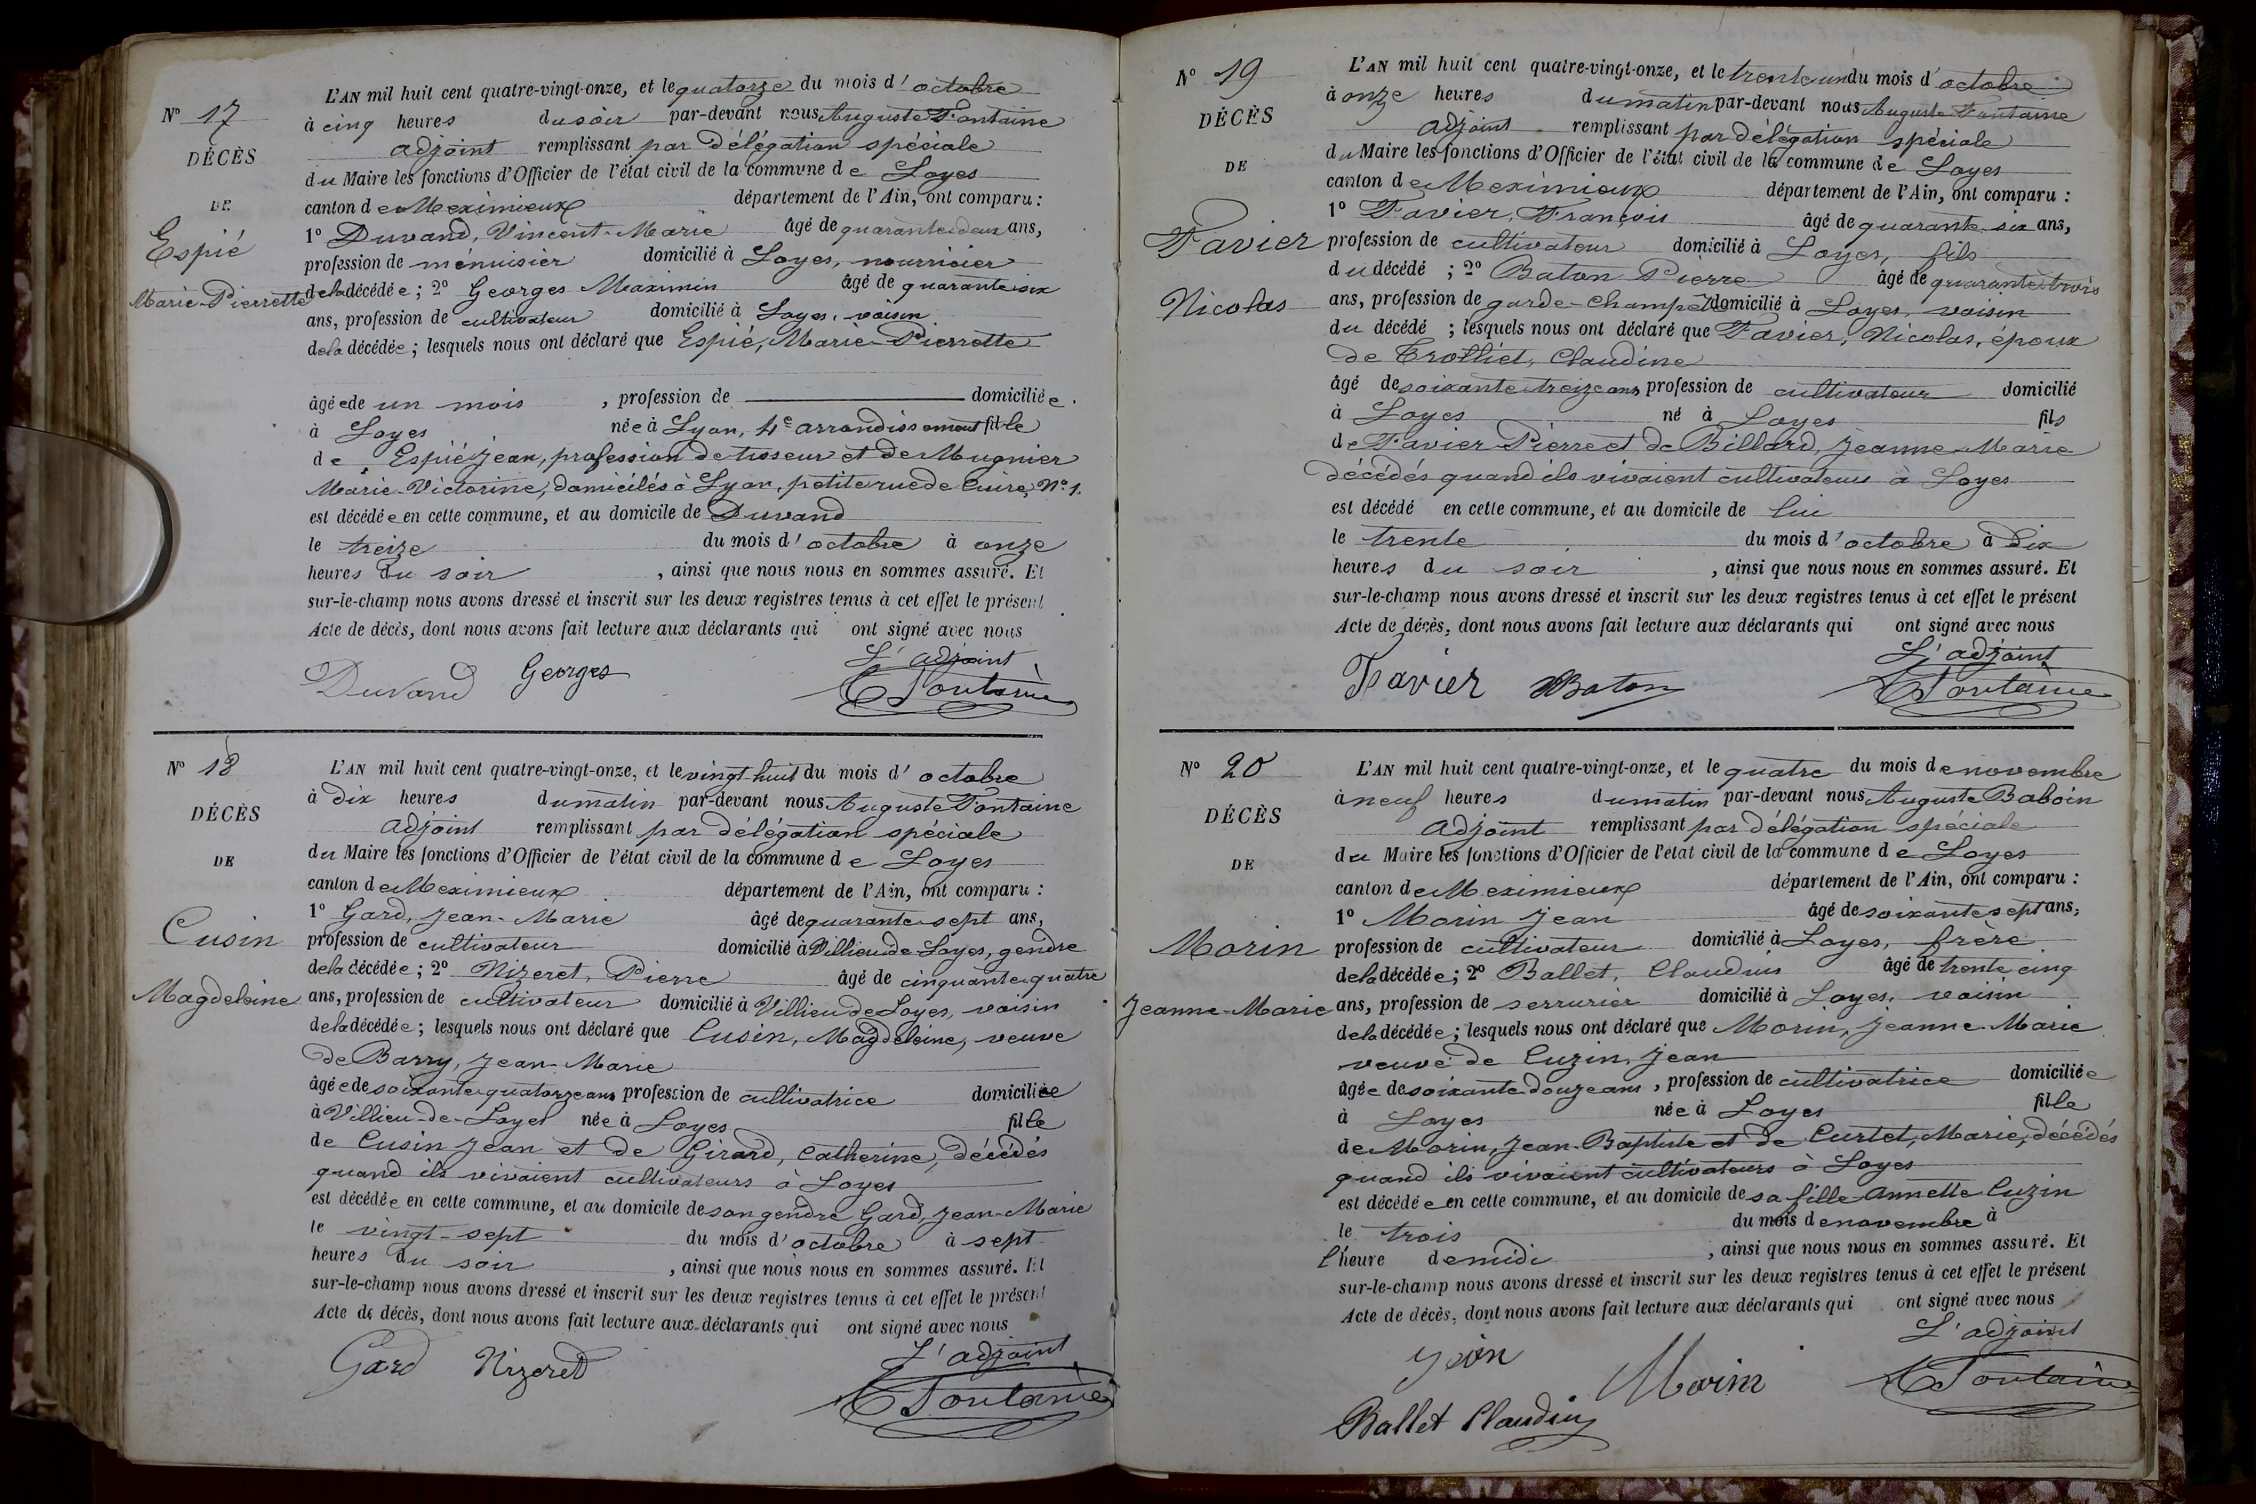 N° 17
DÉCÈS
DE
Espié
Marie-Pierrette
L'AN mil huit cent quatre-vingt-onze, et le quatorze du mois d'octobre
à cinq heures du soir par-devant nous Auguste Fontaine
adjoint remplissant par délégation spéciale
du Maire les fonctions d'Officier de l'état civil de la commune de Loyes
canton de Meximieux département de l'Ain, ont comparu :
1° Duvand, Vincent-Marie âgé de quarante-deux ans,
profession de menuisier domicilié à Loyes, nourricier
de la décédée ; 2° Georges Maximin âgé de quarante-six
ans, profession de cultivateur domicilié à Loyes, voisin
de la décédée ; lesquels nous ont déclaré que Espié, Marie-Pierrette
âgée de un mois , profession de domiciliée
à Loyes née à Lyon, 4e arrondissement fille
de Espié Jean, profession de tisseur et de Mugnier
Marie-Victorine, domiciliés à Lyon, petite rue de Cuire, N° 1.
est décédée en cette commune, et au domicile de Duvand
le treize du mois d'octobre à onze
heures du soir , ainsi que nous nous en sommes assuré. Et
sur-le-champ nous avons dressé et inscrit sur les deux registres tenus à cet effet le présent
Acte de décès, dont nous avons fait lecture aux déclarants qui ont signé avec nous
L'adjoint
Duvand Georges A Fontaine
N° 18
DÉCÈS
DE
Cusin
Magdeleine
L'AN mil huit cent quatre-vingt-onze, et le vingt-huit du mois d'octobre
à dix heures du matin par-devant nous Auguste Fontaine
adjoint remplissant par délégation spéciale
du Maire les fonctions d'Officier de l'état civil de la commune de Loyes
canton de Meximieux département de l'Ain, ont comparu :
1° Gard, Jean-Marie âgé de quarante-sept ans,
profession de cultivateur domicilié à Villieu-de-Loyes, gendre
de la décédée ; 2° Nizeret, Pierre âgé de cinquante-quatre
ans, profession de cultivateur domicilié à Villieu de Loyes, voisin
de la décédée ; lesquels nous ont déclaré que Cusin, Magdeleine, veuve
de Barry, Jean-Marie
âgée de soixante-quatorze ans profession de cultivatrice domiciliée
à Villieu-de-Loyes née à Loyes fille
de Cusin Jean et de Girard, Catherine, décédés
quand ils vivaient cultivateurs à Loyes
est décédée en cette commune, et au domicile de son gendre Gard, Jean-Marie
le vingt-sept du mois d'octobre à sept
heures du soir , ainsi que nous nous en sommes assuré. Et
sur-le-champ nous avons dressé et inscrit sur les deux registres tenus à cet effet le présent
Acte de décès, dont nous avons fait lecture aux déclarants qui ont signé avec nous
L'adjoint
Gard Nizeret A Fontaine
N° 19
DÉCÈS
DE
Favier
Nicolas
L'AN mil huit cent quatre-vingt-onze, et le trente-un du mois d'octobre
à onze heures du matin par-devant nous Auguste Fontaine
adjoint remplissant par délégation spéciale
du Maire les fonctions d'Officier de l'état civil de la commune de Loyes
canton de Meximieux département de l'Ain, ont comparu :
1° Favier, François âgé de quarante-six ans,
profession de cultivateur domicilié à Loyes, fils
du décédé ; 2° Baton Pierre âgé de quarante-trois
ans, profession de garde-champêtre domicilié à Loyes, voisin
du décédé ; lesquels nous ont déclaré que Favier, Nicolas, époux
de Trolliet, Claudine
âgé de soixante-treize ans profession de cultivateur domicilié
à Loyes né à Loyes fils
de Favier Pierre et de Billard, Jeanne-Marie
décédés quand ils vivaient cultivateurs à Loyes
est décédé en cette commune, et au domicile de lui
le trente du mois d'octobre à dix
heures du soir , ainsi que nous nous en sommes assuré. Et
sur-le-champ nous avons dressé et inscrit sur les deux registres tenus à cet effet le présent
Acte de décès, dont nous avons fait lecture aux déclarants qui ont signé avec nous
L'adjoint
Favier Baton A Fontaine
N° 20
DÉCÈS
DE
Morin
Jeanne-Marie
L'AN mil huit cent quatre-vingt-onze, et le quatre du mois de novembre
à neuf heures du matin par-devant nous Auguste Baboin
Adjoint remplissant par délégation spéciale
du Maire les fonctions d'Officier de l'état civil de la commune de Loyes
canton de Meximieux département de l'Ain, ont comparu :
1° Morin Jean âgé de soixante-sept ans,
profession de cultivateur domicilié à Loyes, frère
de la décédée ; 2° Ballet, Claudius âgé de trente-cinq
ans, profession de serrurier domicilié à Loyes, voisin
de la décédée ; lesquels nous ont déclaré que Morin, Jeanne-Marie
veuve de Cuzin, Jean
âgée de soixante-douze ans , profession de cultivatrice domiciliée
à Loyes née à Loyes fille
de Morin, Jean-Baptiste et de Curtet, Marie, décédés
quand ils vivaient cultivateurs à Loyes
est décédée en cette commune, et au domicile de sa fille Annette Cuzin
le trois du mois de novembre à
l'heure de midi , ainsi que nous nous en sommes assuré. Et
sur-le-champ nous avons dressé et inscrit sur les deux registres tenus à cet effet le présent
Acte de décès, dont nous avons fait lecture aux déclarants qui ont signé avec nous
L'adjoint
Morin A Fontaine
Ballet Claudius